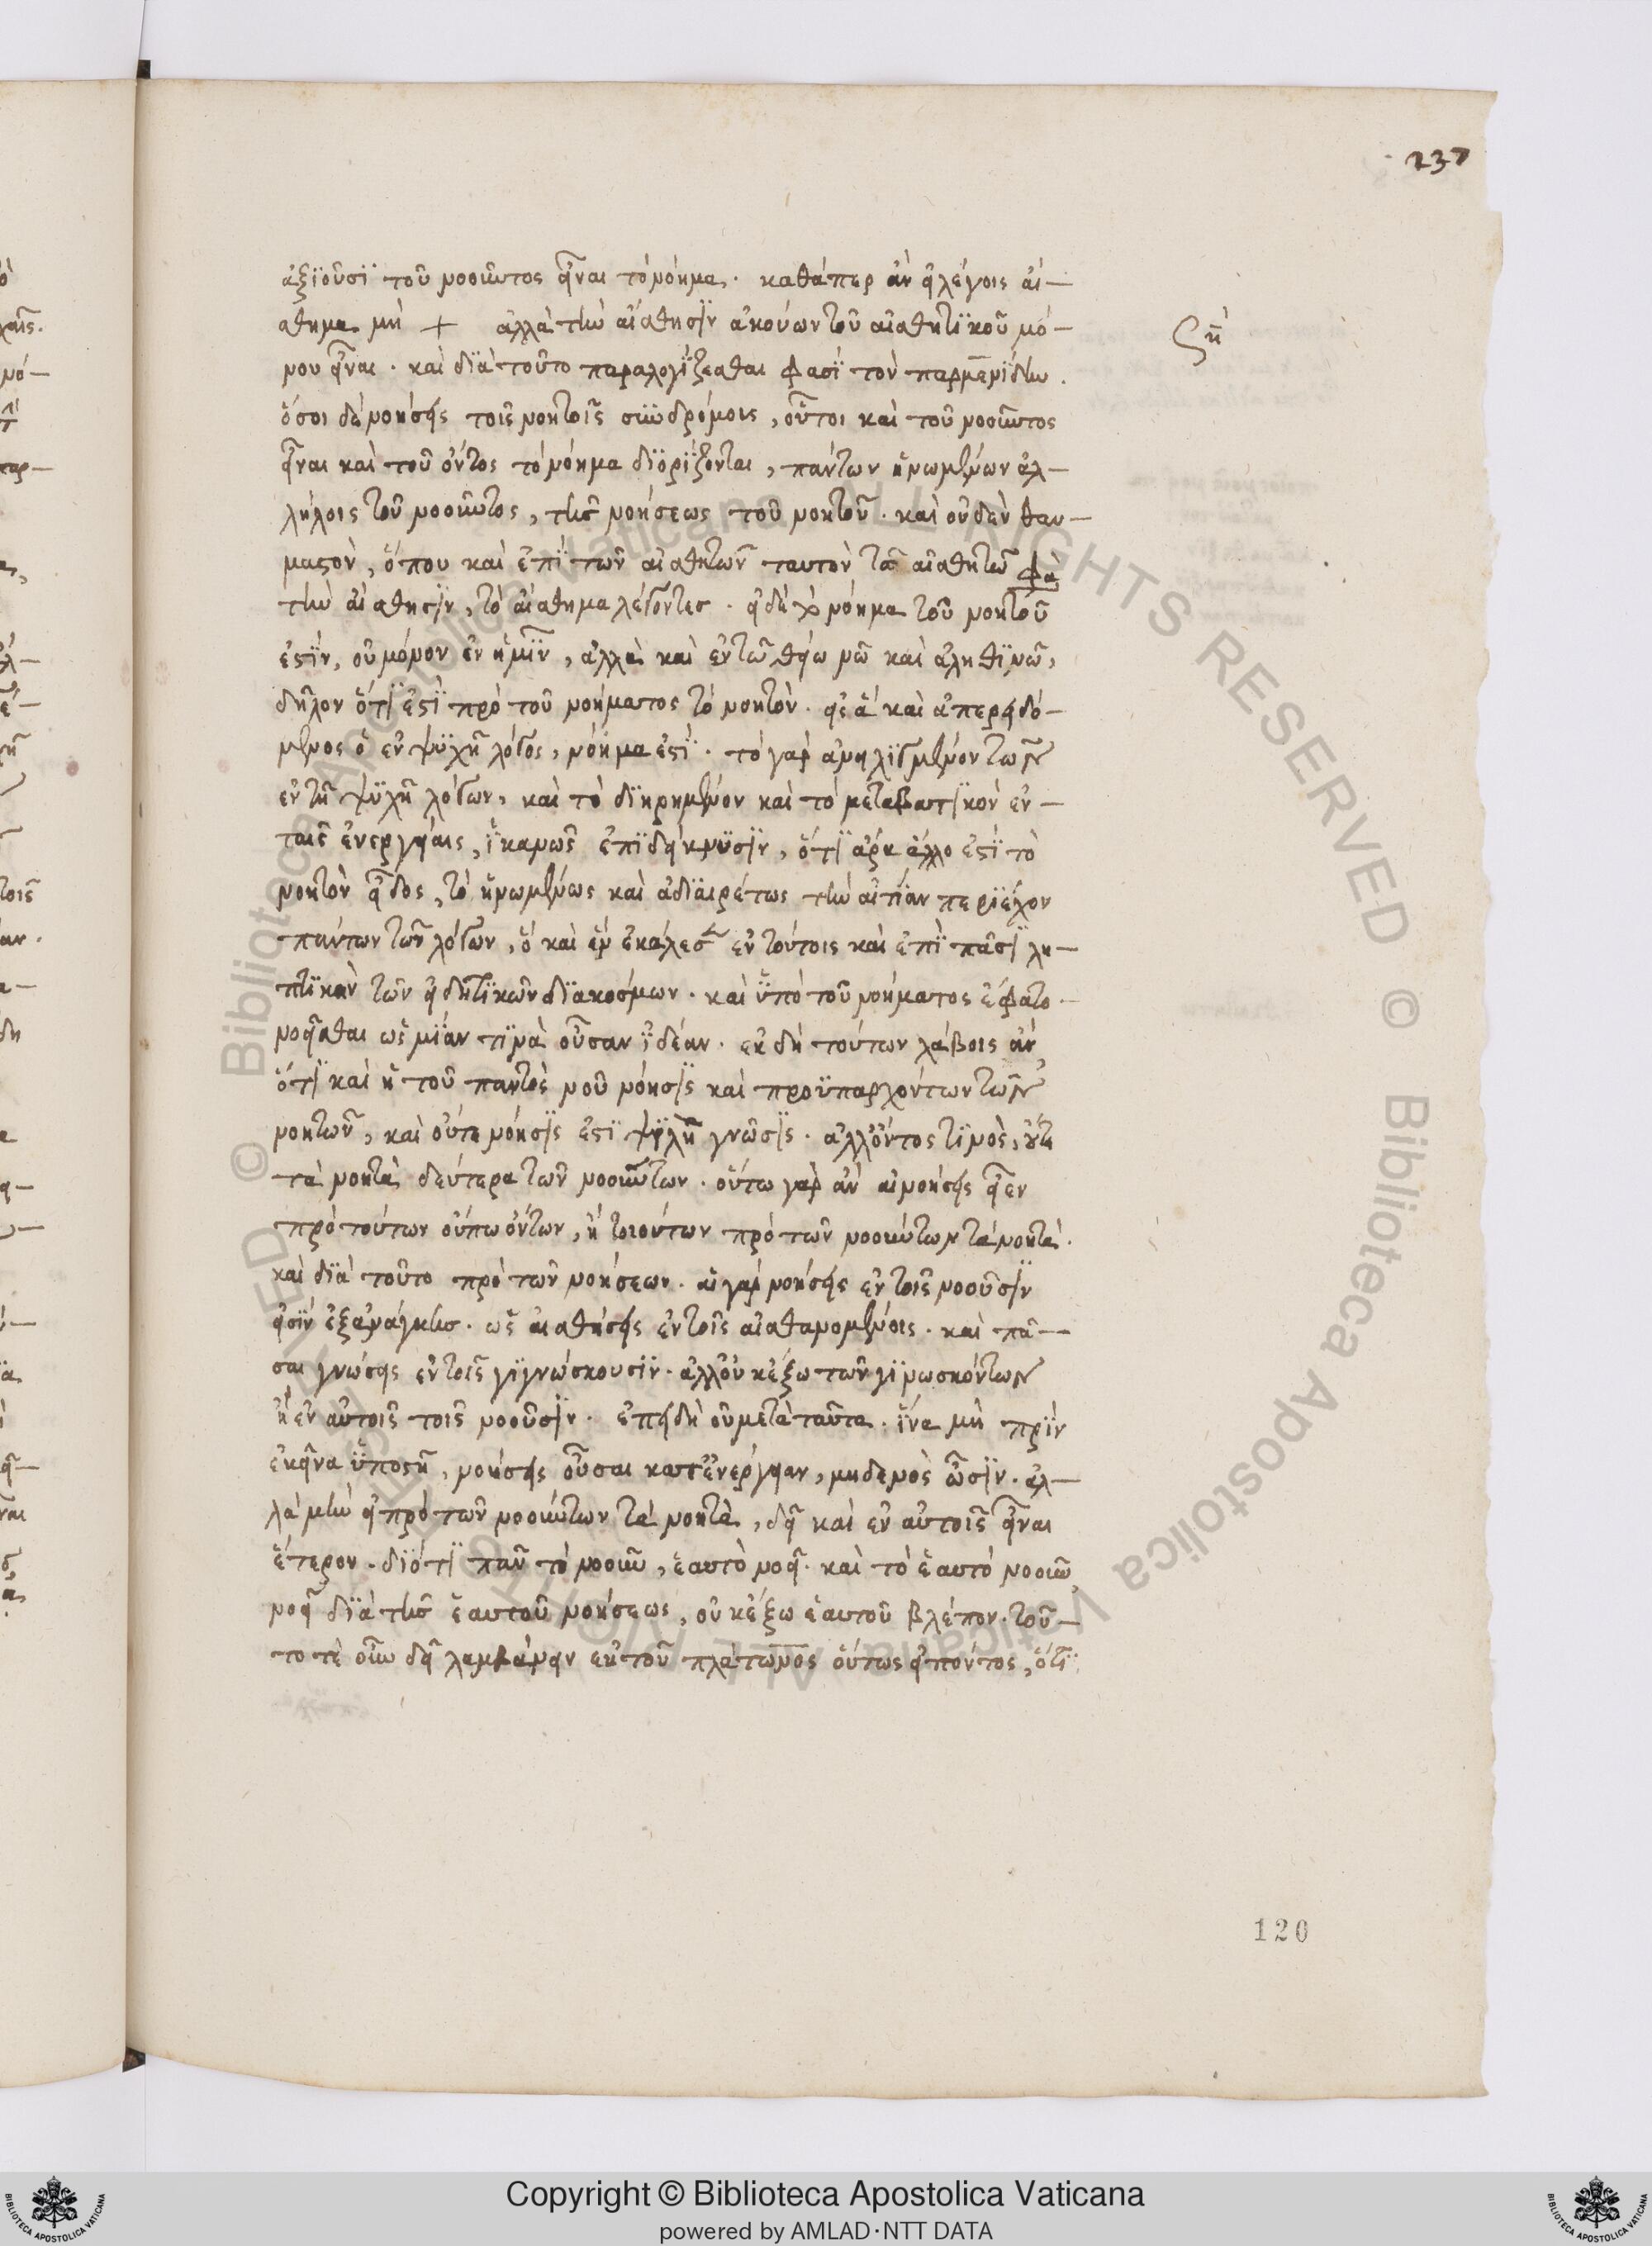 237
ἀξιοῦσι τοῦ νοοῦντος εἶναι τὸ νόημα. καθάπερ ἂν εἰ λέγοις αἴ-
σθημα μὴ + ἀλλὰ τὴν αἴσθησιν ἀκούων τοῦ αἰσθητικοῦ μό-
νου εἶναι. καὶ διὰ τοῦτο παραλογίζεσθαι φασὶ τὸν παρμενίδην.
ὅσοι δὲ νοήσεις τοῖς νοητοῖς συνδρόμοις, οὗτοι καὶ τοῦ νοοῦντος
εἶναι καὶ τοῦ ὄντος τὸ νόημα διορίζονται, πάντων ἡνωμένων ἀλ-
λήλοις τοῦ νοοῦντος, τῆς νοήσεως τοῦ νοητοῦ. καὶ οὐδὲν θαυ-
μαστὸν, ὅπου καὶ ἐπὶ τῶν αἰσθητῶν ταυτὸν τῶ αἰσθητῶ φα
τὴν αἴσθησιν, τὸ αἴσθημα λέγοντες. εἰ δὲ τὸ νόημα τοῦ νοητοῦ
ἐστὶν, οὐ μόνον ἐν ἡμῖν, ἀλλὰ καὶ ἐν τῶ θείω νῶ καὶ ἀληθινῶ,
δῆλον ὅτι ἐστὶ πρὸ τοῦ νοήματος τὸ νοητὸν. εἰς ἃ καὶ ἀπερειδό-
μενος ὁ ἐν ψυχῆ λόγος, νόημα ἐστὶ. τὸ γὰρ ἀνειλιγμένον τῶν
ἐν τῆ ψυχῆ λόγων, καὶ τὸ διηρημένον καὶ τὸ μεταβατικὸν ἐν
ταῖς ἐνεργείαις, ἱκανῶς ἐπιδείκνυσιν, ὅτι ἄρα ἄλλο ἐστὶ τὸ
νοητὸν εἶδος, τὸ ἡνωμένως καὶ ἀδιαιρέτως τὴν αἰτίαν περιέχον
πάντων τῶν λόγων, ὃ καὶ ἓν ἐκάλεσεν ἐν τούτοις καὶ ἐπὶ πᾶσι λη-
πτικὸν τῶν εἰδητικῶν διακόσμων. καὶ ὑπὸ τοῦ νοήματος ἔφατο
νοεῖσθαι ὡς μίαν τινὰ οὖσαν ἰδέαν. ἐκ δὴ τούτων λάβοις ἂν
ὅτι καὶ ἡ τοῦ παντὸς νοῦ νόησις καὶ προϋπαρχόντων τῶν
νοητῶν, καὶ οὔτε νόησις ἐστὶ ψιλὴ γνῶσις. ἀλλ' ὄντος τινὸς, οὔτε
τὰ νοητὰ δεύτερα τῶν νοούντων. οὕτω γὰρ ἂν αἱ νοήσεις εἶεν
πρὸ τούτων οὔπω ὄντων, ἢ τοιούτων πρὸ τῶν νοούντων τὰ νοητὰ.
καὶ διὰ τοῦτο πρὸ τῶν νοήσεων. αἱ γὰρ νοήσεις ἐν τοῖς νοοῦσιν
εἰσὶν ἐξ ἀνάγκης. ὡς αἰσθήσεις ἐν τοῖς αἰσθανομένοις. καὶ πᾶ-
σαι γνώσεις ἐν τοῖς γιγνώσκουσιν. ἀλλ' οὐκ ἔξω τῶν γινωσκόντων
ἢ ἐν αὐτοῖς τοῖς νοοῦσιν. ἐπειδὴ οὐ μετὰ ταῦτα. ἵνα μὴ πρὶν
ἐκεῖνα ὑποστῆ, νοήσεις οὖσαι κατ' ἐνέργειαν, μηδενὸς ὦσιν. ἀλ-
λὰ μὴν εἰ πρὸ τῶν νοούντων τὰ νοητὰ, δεῖ καὶ ἐν αὐτοῖς εἶναι
ἕτερον. διότι πᾶν τὸ νοοῦν, ἑαυτὸ νοεῖ. καὶ τὸ ἑαυτὸ νοοῦν
νοεῖ διὰ τῆς ἑαυτοῦ νοήσεως, οὐκ ἔξω ἑαυτοῦ βλέπον. τοῦ-
το τὲ οὖν δεῖ λαμβάνειν ἐκ τοῦ πλάτωνος οὕτως εἰπόντος, ὅτι
120
Copyright © Biblioteca Apostolica Vaticana
powered by AMLAD·NTT DATA